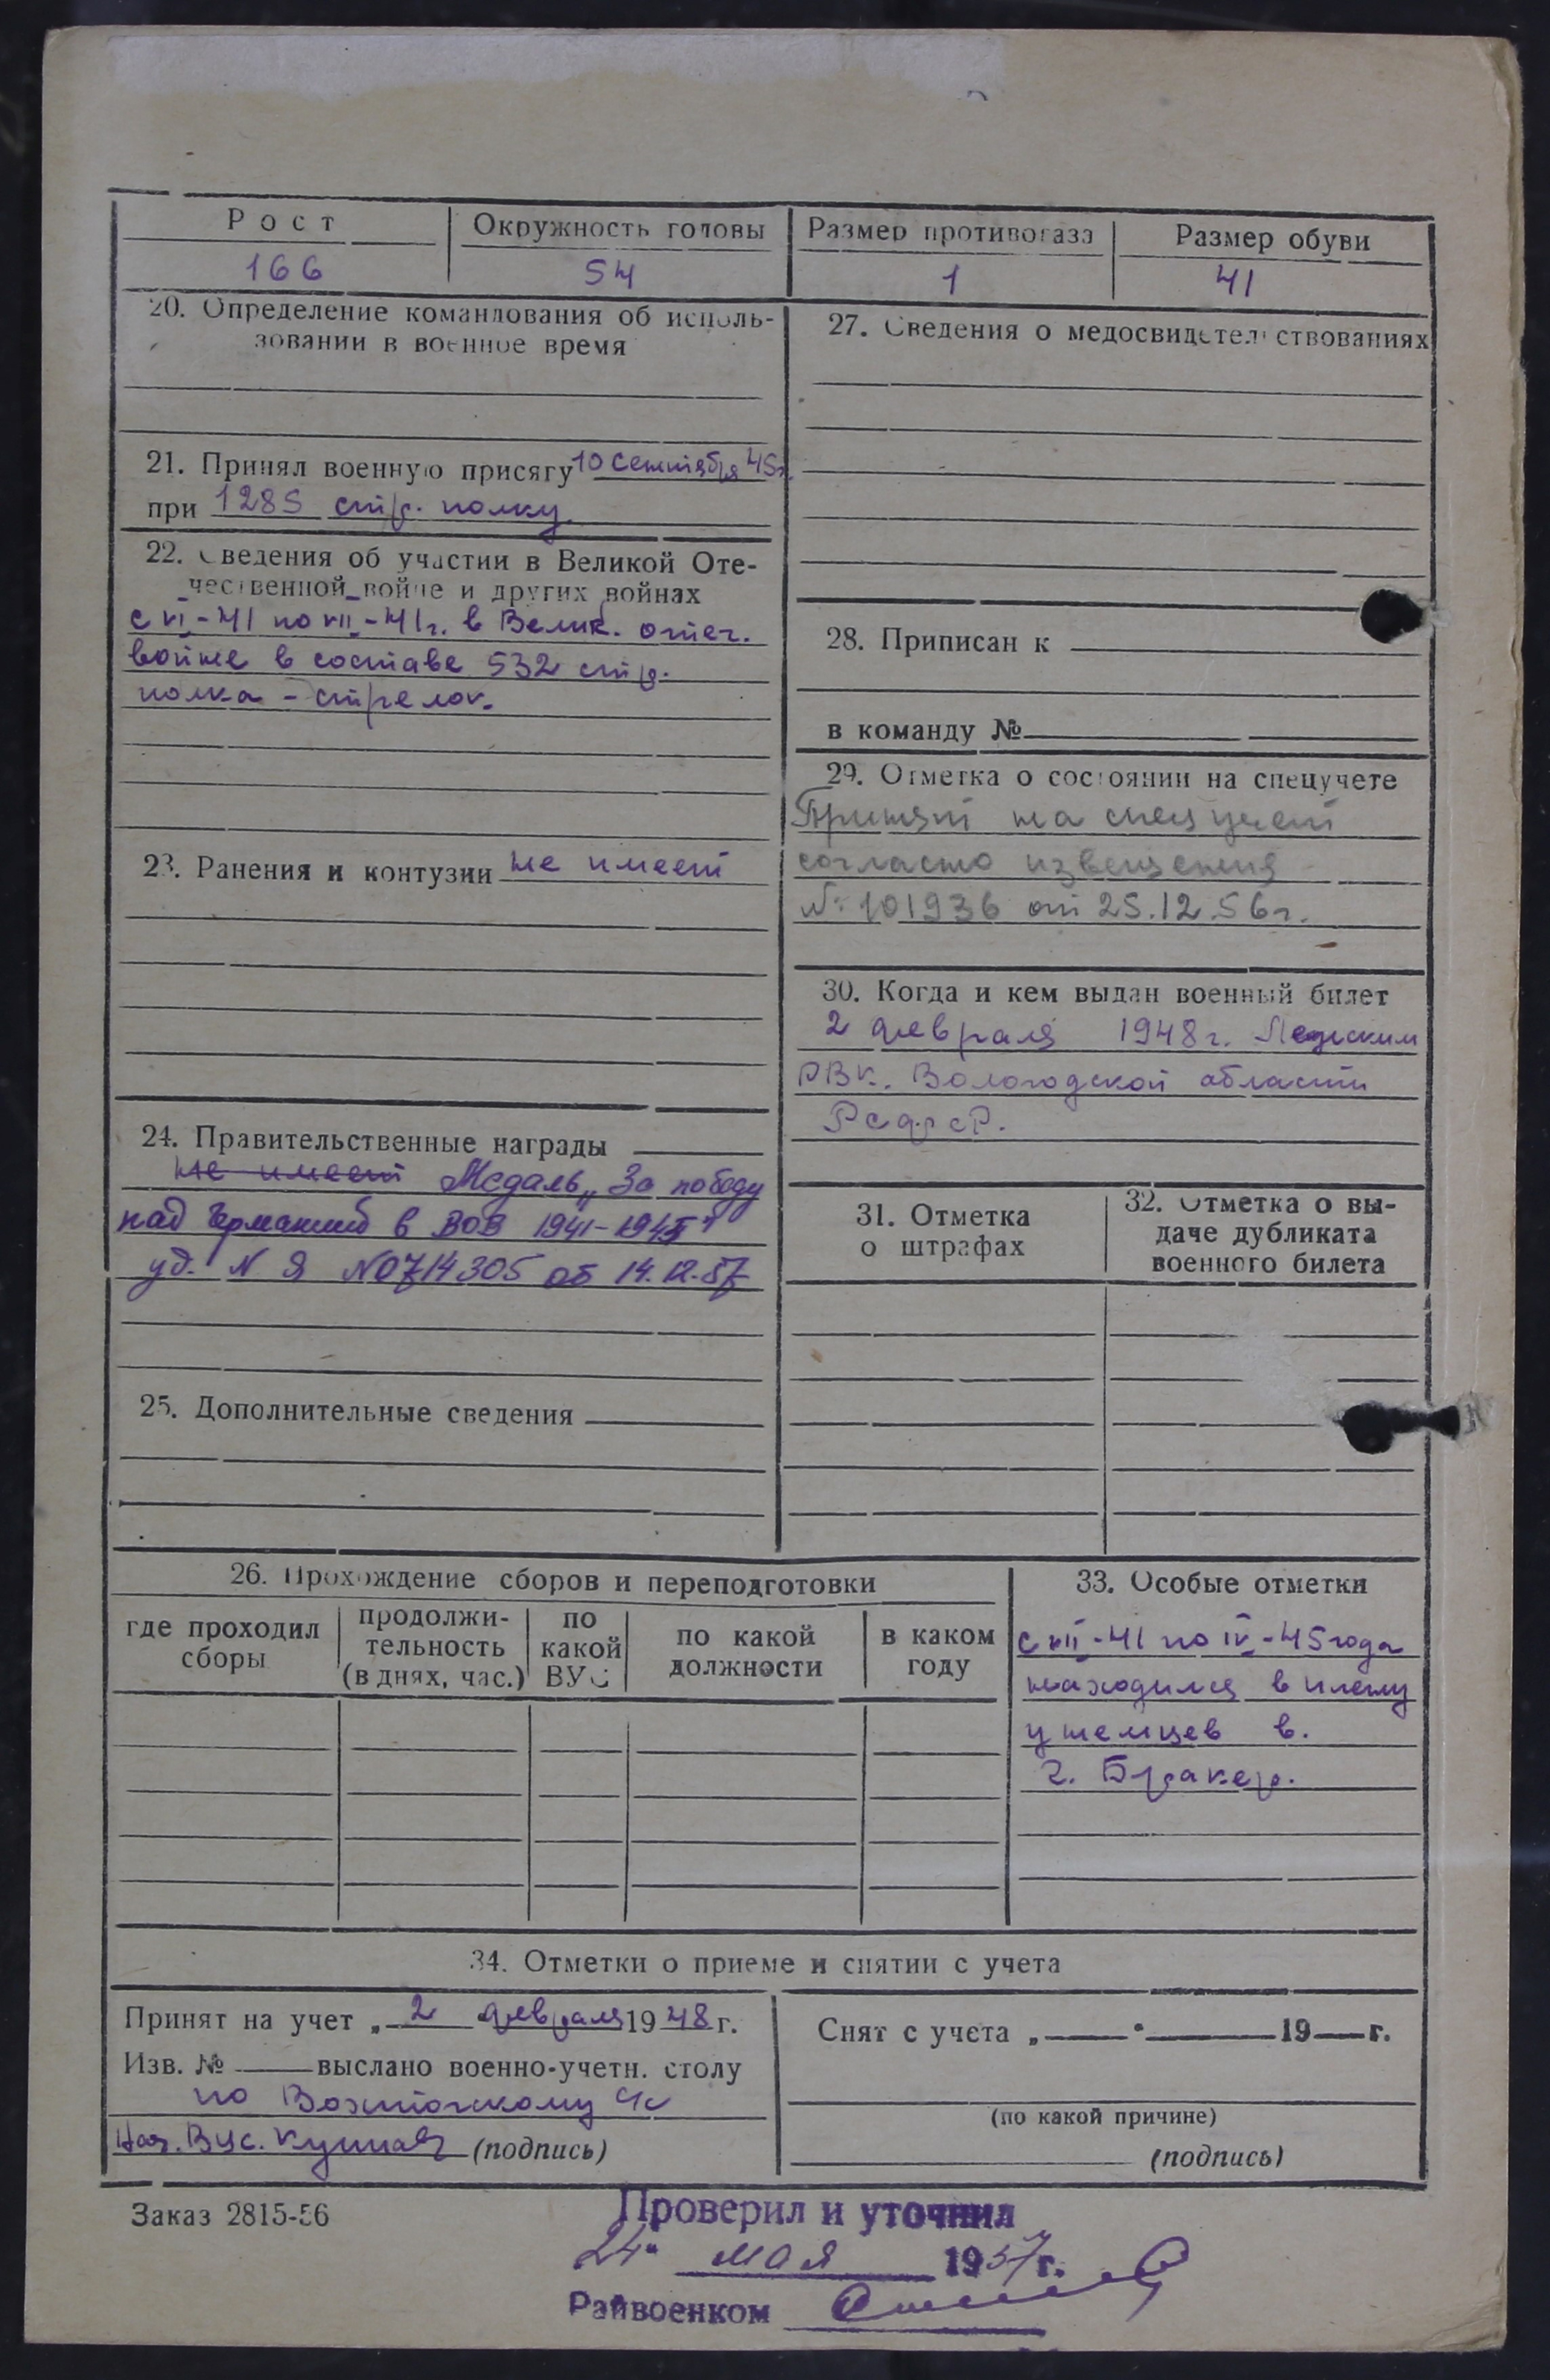 Рост
Окружность головы
Размер противогаза
Размер обуви
166
54
1
41
20. Определение командования об исполь-
зовании в военное время
21. Принял военную присягу 10 сентября 45г.
при 1285 стр. полку.
22. Сведения об участии в Великой Оте-
чественной войне и других войнах
с VI-41 по VII-41г. в Велик. отеч.
войне в составе 532 стр.
полка - стрелок.
23. Ранения и контузии не имеет
24. Правительственные награды
не имеет Медаль „За победу
над Германией в ВОВ 1941-1945"
уд. N Я N0714305 от 14.12.57
25. Дополнительные сведения
27. Сведения о медосвидетельствованиях
28. Приписан к
в команду №
29. Отметка о состоянии на спецучете
Принят на спец учет
согласно извещения
№ 101936 от 25.12.56г.
30. Когда и кем выдан военный билет
2 февраля 1948г.
РВК. Вологодской области
РСФСР.
31. Отметка
о штрафах
32. Отметка о вы-
даче дубликата
военного билета
26. Прохождение сборов и переподготовки
где проходил
сборы
продолжи-
тельность
(в днях, час.)
по
какой
ВУС
по какой
должности
в каком
году
33. Особые отметки
с VII-41 по IV-45 года
находился в плену
у немцев в.
г. Бракер.
34. Отметки о приеме и снятии с учета
Принят на учет „ 2 февраля 1948 г.
Изв. № выслано военно-учетн. столу
по
Нач. ВУС. (подпись)
Снят с учета „ " 19 г.
(по какой причине)
(подпись)
Заказ 2815-56
Проверил и уточнил
24" мая 1957 г.
Райвоенком